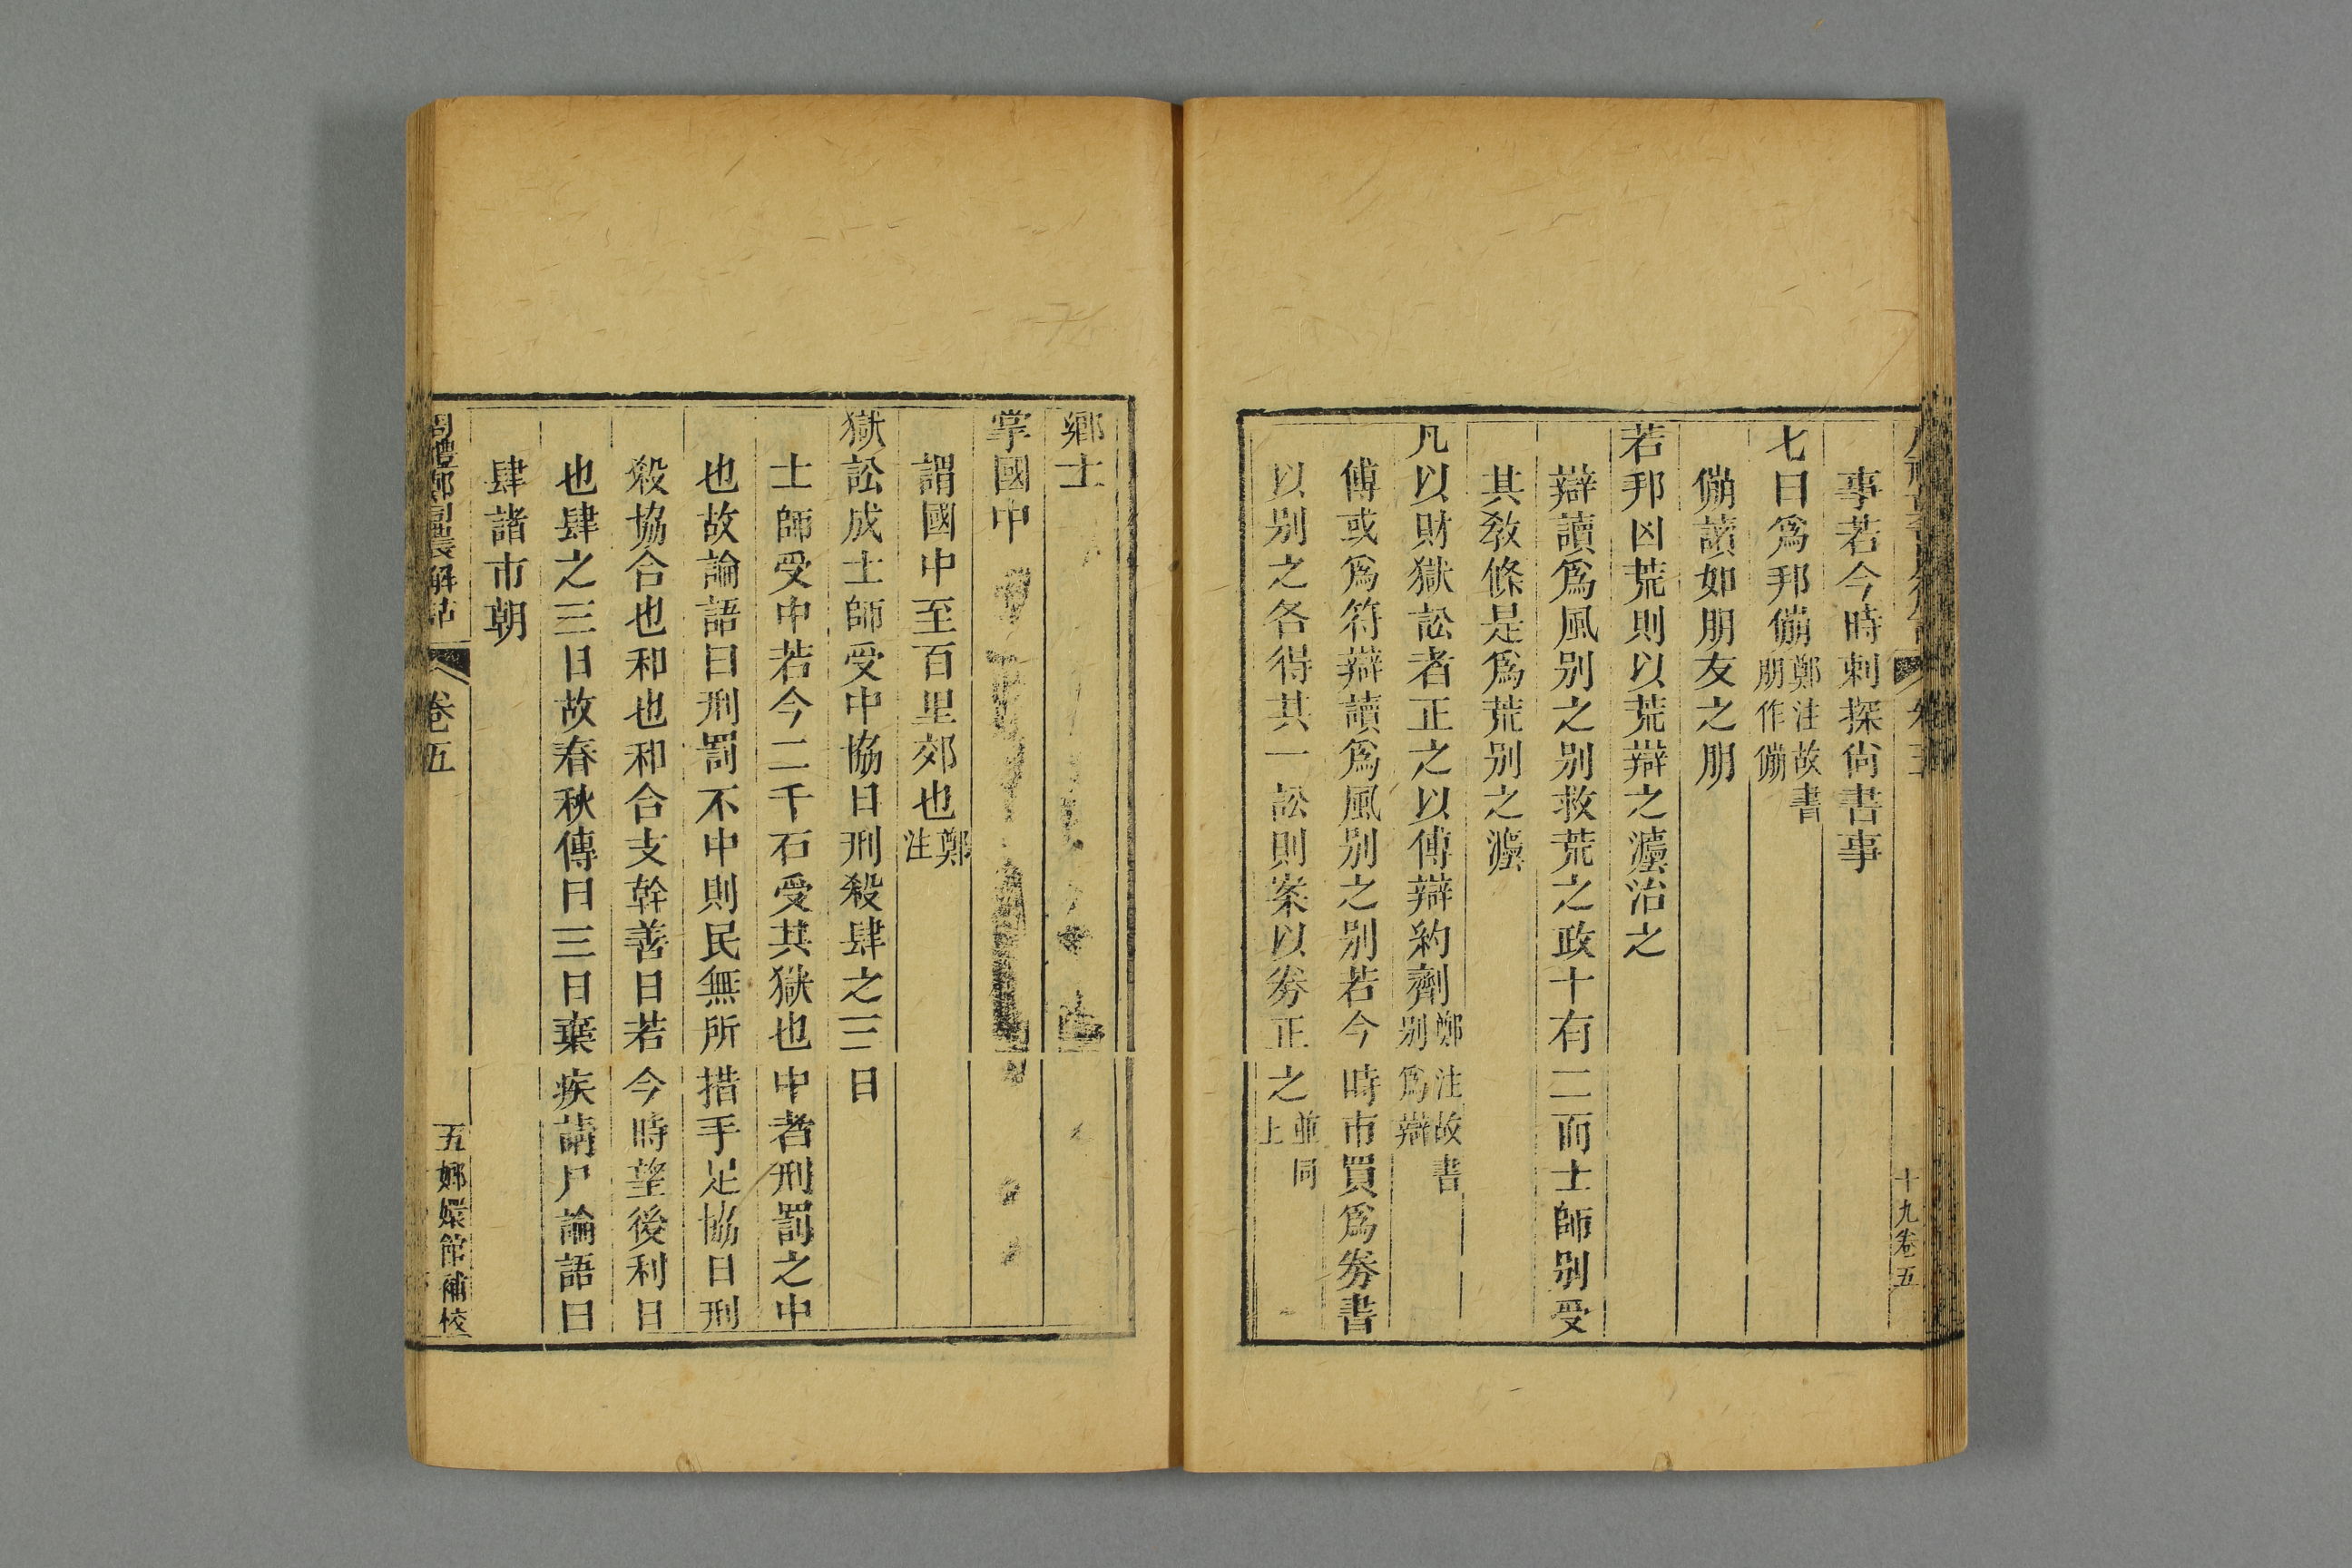 事若今時刺探尙書事
七曰爲邦傰鄭注故書朋作傰
傰讀如朋友之朋
若邦凶荒則以荒辯之灋治之
辯讀爲風别之别救荒之政十有二而士師别受
其敎條是爲荒别之灋
凡以財獄訟者正之以傅辯約劑鄭注故書别爲辯
傅或爲符辯讀爲風别之别若今時市買爲劵書
以别之各得其一訟則案以劵正之並同上
十九卷五
鄉士
掌國中
謂國中至百里郊也鄭注
獄訟成士師受中協日刑殺肆之三日
士師受中若今二千石受其獄也中者刑罰之中
也故論語曰刑罰不中則民無所措手足協日刑
殺協合也和也和合支幹善日若今時望後利日
也肆之三日故春秋傳曰三日棄疾請尸論語曰
肆諸市朝
周禮鄭司農解詁
卷五
五鄉嬛館補校